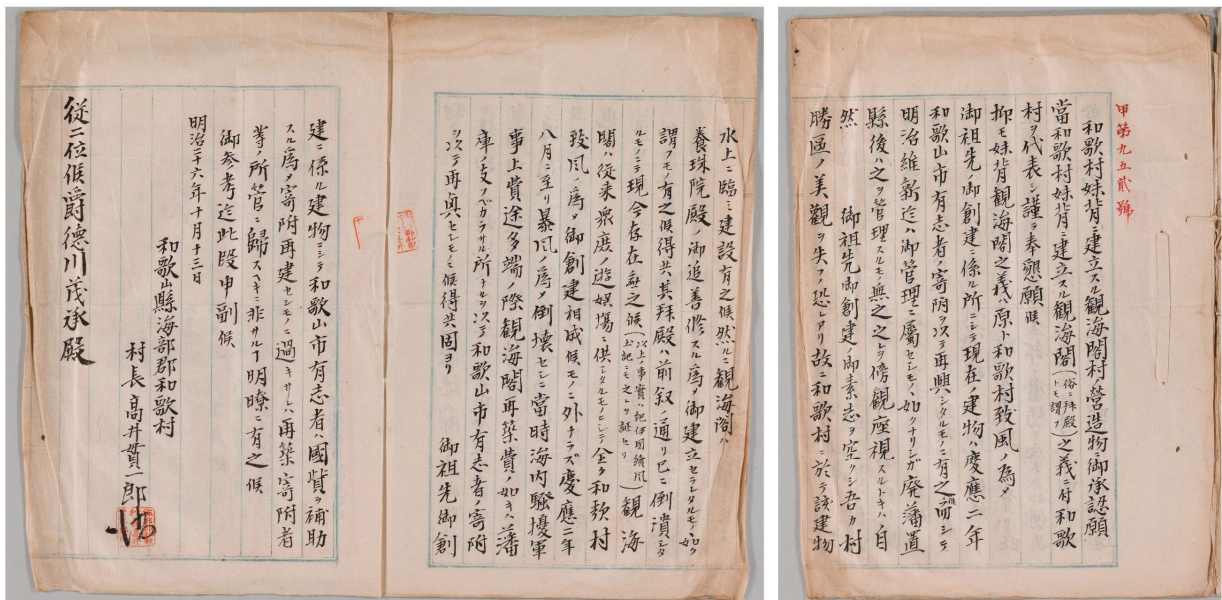 甲第九五貳號
和歌村妹背ニ建立スル観海閣村ノ營造物ニ御承認願
當和歌村妹背ニ建立スル観海閣(俗ニ拜殿トモ謂フ)之義ニ付和歌
村ヲ代表シ謹テ奉懇願候
抑モ妹背観海閣之義ハ原ト和歌村致風ノ為メ
御祖先ノ御創建ニ係ル所ニシテ現在ノ建物ハ慶應二年
和歌山市有志者ノ寄附ヲ以テ再興シタルモノニ有之而シテ
明治維新迄ハ御管理ニ屬セシモノヽ如クナリシガ廃藩置
縣後ハ之ヲ管理スルモノ無之之レヲ傍観座視スルトキハ自
然 御祖先御創建ノ御素志ヲ空クシ吾カ村
勝區ノ美觀ヲ失フノ恐レアリ故ニ和歌村ニ於テ該建物
水上ニ臨ミ建設有之候然ルニ観海閣ハ
養珠院殿ノ御追善修スル為メ御建立セラレタルモノヽ如ク
謂フモノ有之候得共其拜殿ハ前叙ノ通リ已ニ倒潰シタ
ルモノニテ現今存在無之候(以上ノ事實ハ紀伊國續風土記ニモ之レヲ証セリ)観海
閣ハ従来衆庶ノ遊娯場ニ供シタルモノニシテ全ク和歌村
致風ノ為メ御創建相成候モノニ外ナラズ慶應二年
八月ニ至リ暴風ノ為メ倒壊セシニ當時海内騒擾軍
事上費途多端ノ際観海閣再築費ノ如キハ藩
庫ノ支フベカラサル所ナルヲ以テ和歌山市有志者ノ寄附
ヲ以テ再興セシモノニ候得共固ヨリ 御祖先御創
建ニ係ル建物ニシテ和歌山市有志者ハ國費ヲ補助
スル為メ寄附再建セシモノニ過キサレハ再築寄附者
等ノ所管ニ歸スヘキニ非サルヿ明瞭ニ有之候
御参考迄此段申副候
明治二十六年十月十三日
和歌山縣海部郡和歌村
村長髙井貫一郎
従二位候爵徳川茂承殿